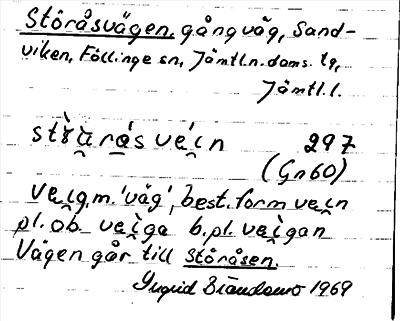 Störåsvägen, gångväg, Sand-
viken, Föllinge sn, Jämtl.n. doms. tg,
Jämtl.l.
297
(Gn60)
veig, m. 'väg', best. form vein
pl. ob. veiga b.pl. veigan
Vägen går till Störåsen.
Ingrid 1969